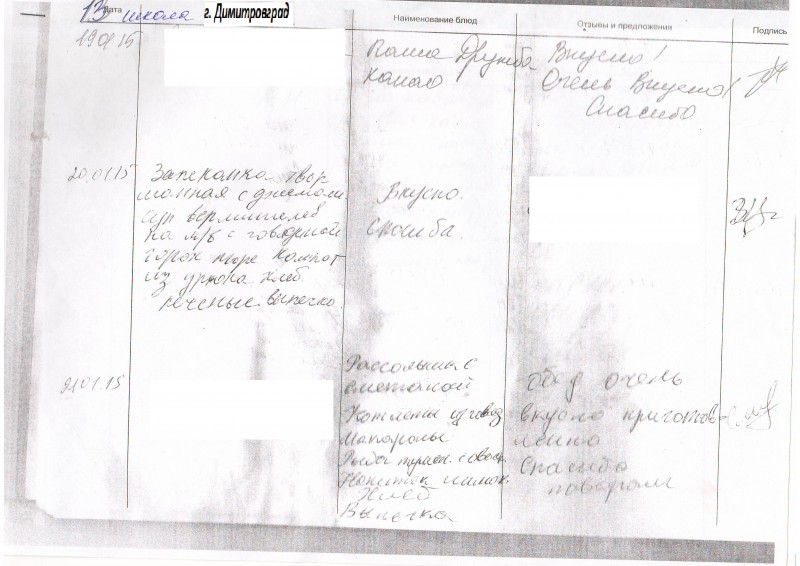 13 школа г. Димитровград
Дата
Наименование блюд
Отзывы и предложения
Подпись
19 01 15
Каша Дружба
Какао
Вкусно!
Очень Вкусно!
Спасибо
20.01.15
Запеканка твор-
с джемом.
суп вермишелев
на м/б с говядиной
горох пюре компот
из урюка хлеб
печенье выпечка.
Вкусно.
Спасибо.
21 01.15
Рассольник с
сметаной
Котлеты из говяд
Макароны
Рыба с овощ
Напиток
Хлеб
Выпечка
обед очень
вкусно приготов-
ленно
Спасибо
поварам